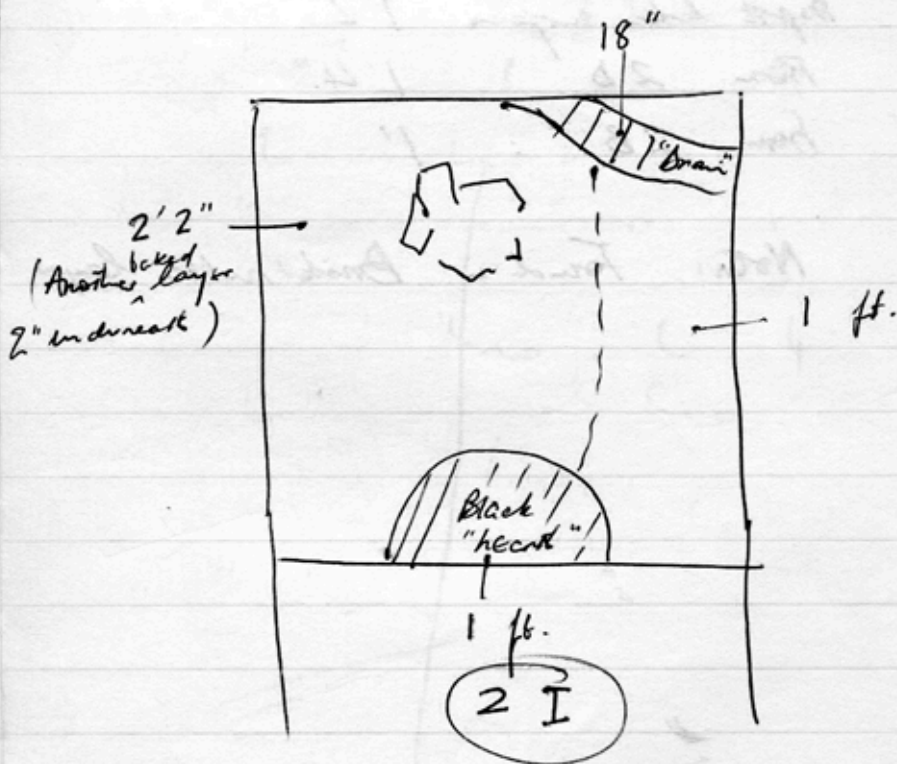 18"
"Drain"
2' 2"
(Another baked layer
2" underneath)
1 ft.
Black
"heart"
1 ft.
2 I